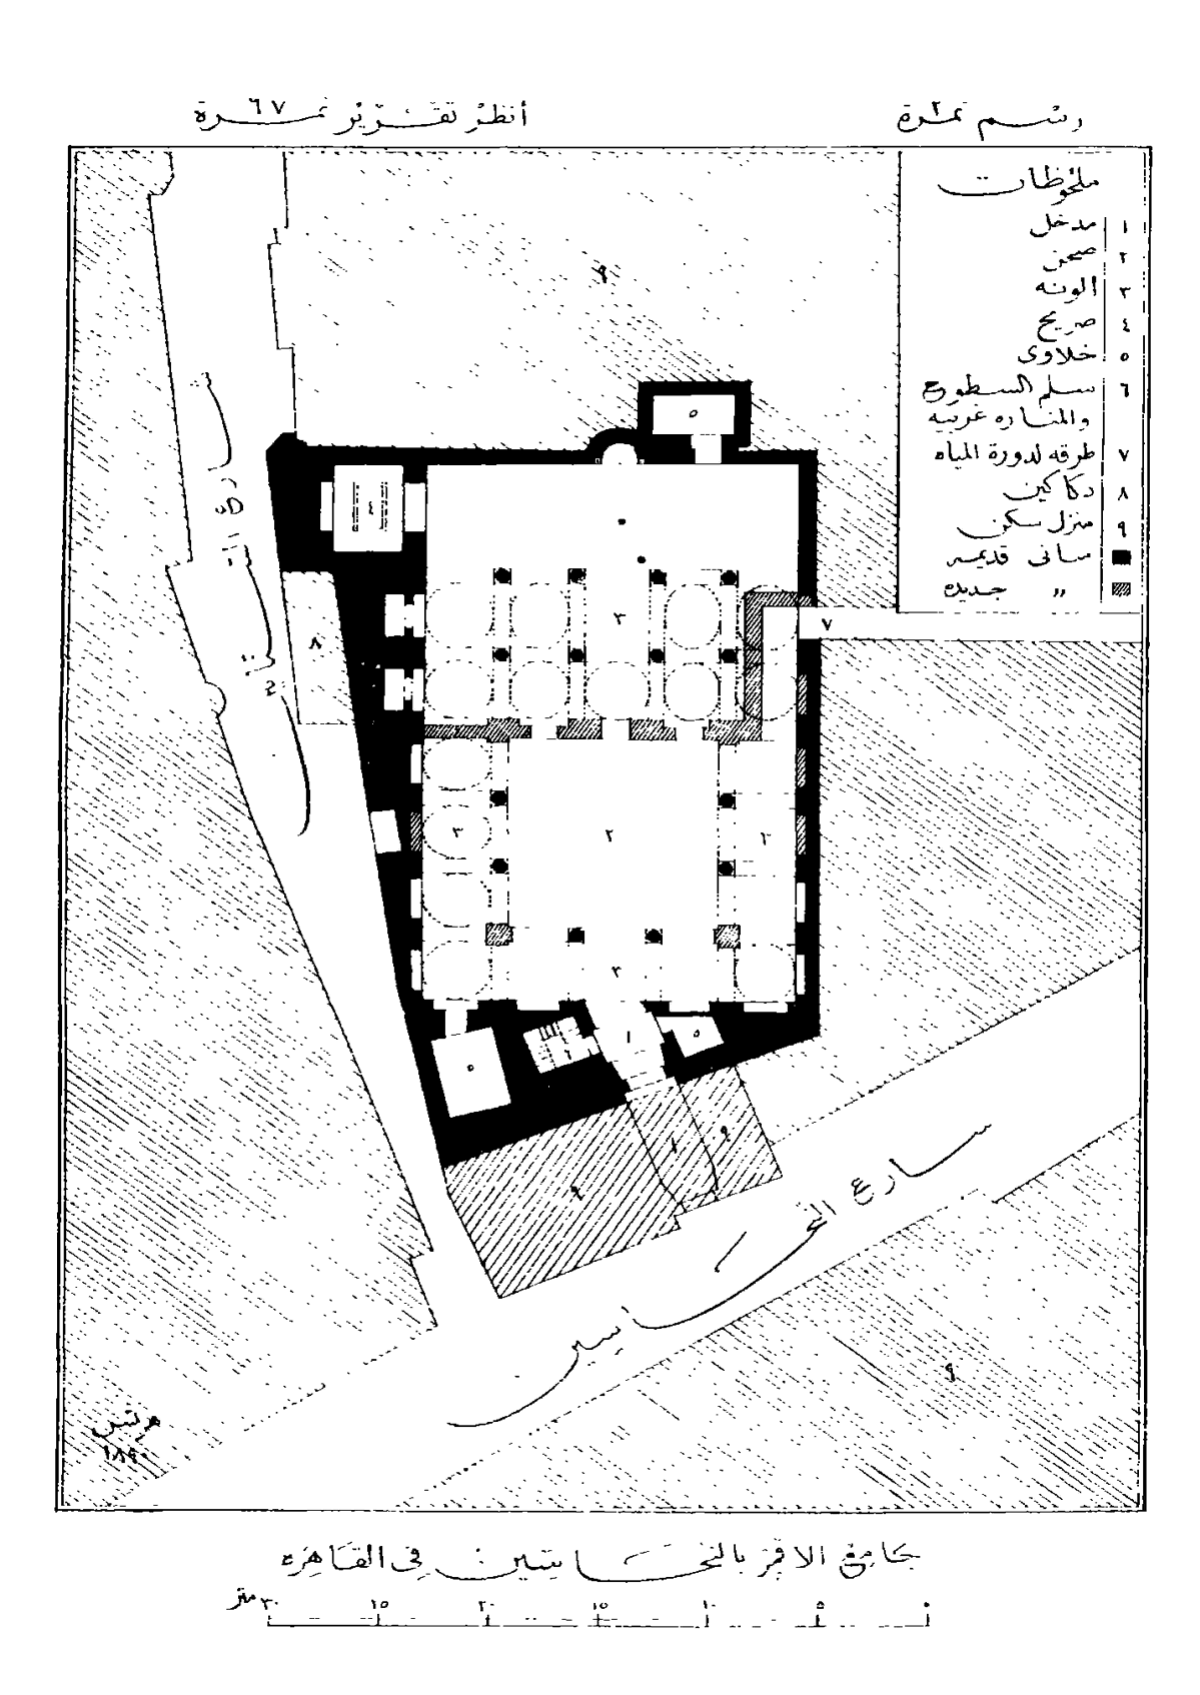 رسم نمرة ٢
أنظر تقرير نمرة ٦٧
ملحوظات
١ مدخل
٢ صحن
٣ الونه
٤ ضريح
٥ خلاوى
٦ سلم السطوح
والمناره غربيه
٧ طرقه لدورة المياه
٨ دكاكين
٩ منزل سكن
مبانى قديمه
〃 جديده
٩
٥
٣
٧
٨
٣
٢
٣
٣
١
٥
٦
٥
١
٩
٩
شارع النحاسين
٩
١٨٩٠
جامع الاقمر بالنحاسين فى القاهره
٣٠ متر ٢٥ ٢٠ ١٥ ١٠ ٥ ٠